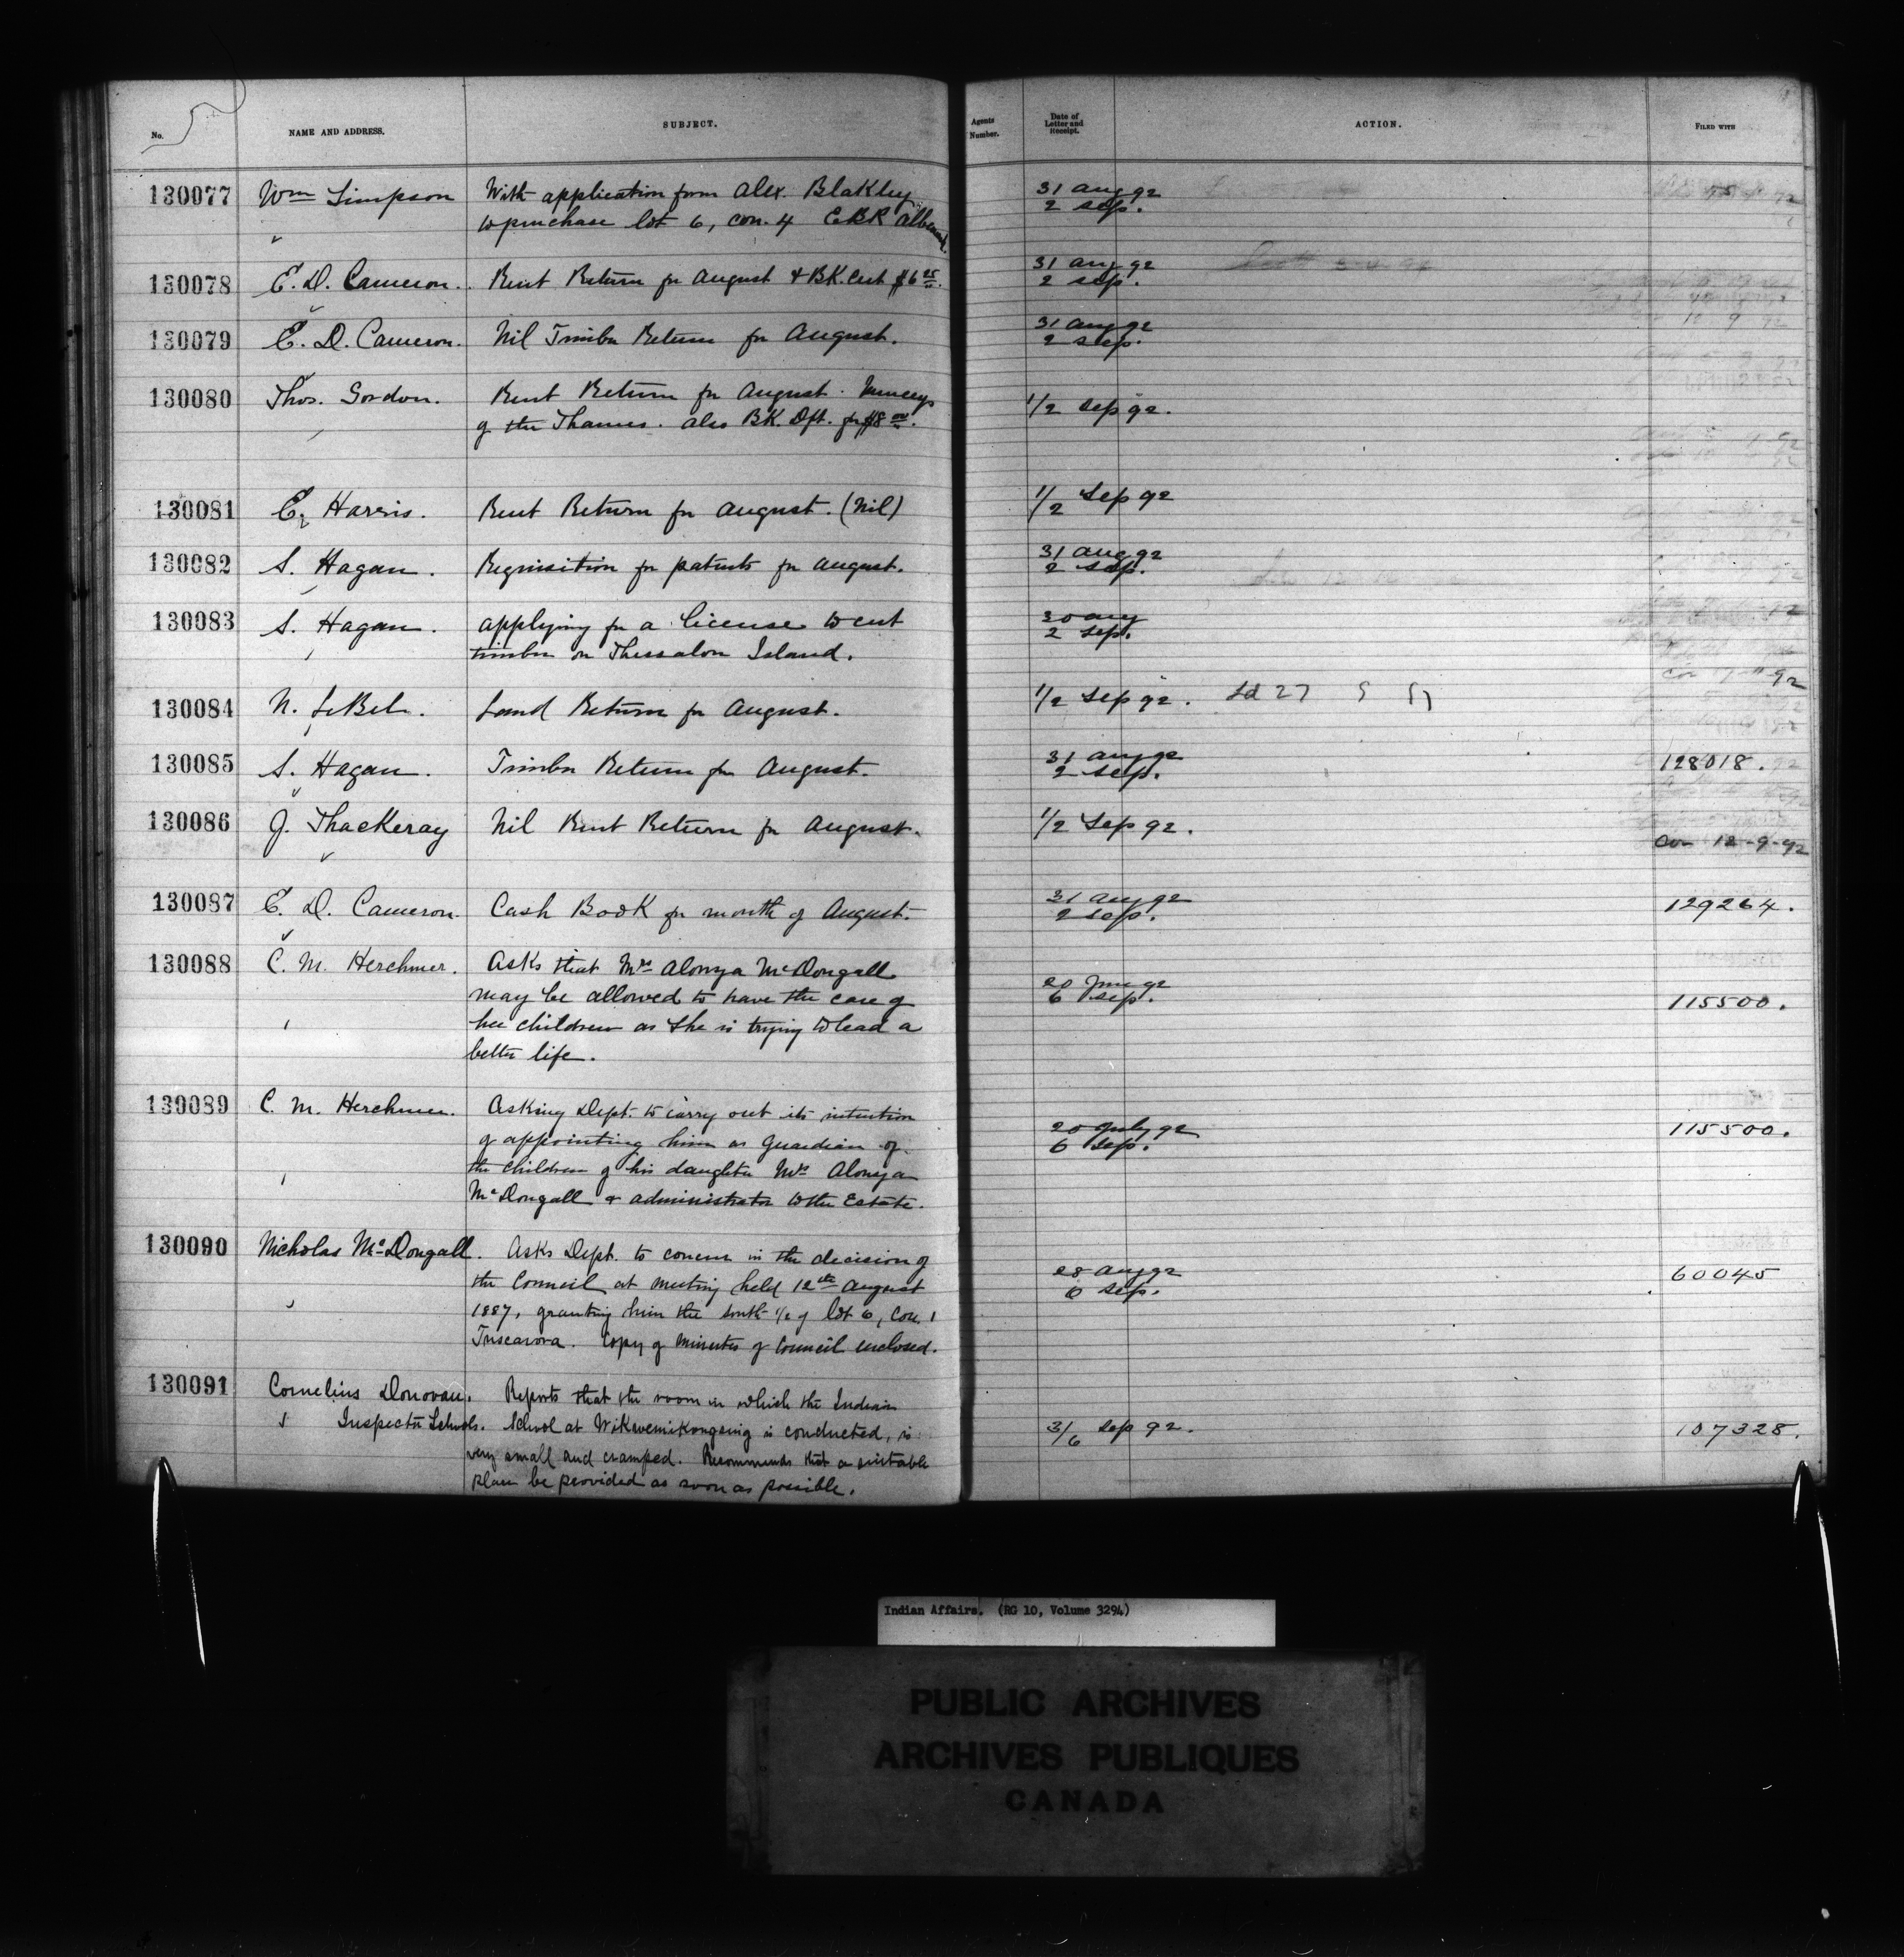 No. NAME AND ADDRESS. SUBJECT. Agents Number. Date of Letter and Receipt. ACTION. FILED WITH
130077 Wm Simpson With application from Alex. Blakley 31 Aug 92
to purchase lot 6, con. 4 EBR Albemarle. 2 Sep.
130078 E. D. Cameron. Rent Return for August & BK. Cert $6 25. 31 Aug 92
2 Sep.
130079 E. D. Cameron. Nil Timber Return for August. 31 Aug 92
2 Sep.
130080 Thos. Gordon. Rent Return for August Munceys 1/2 Sep 92.
of the Thames. also BK. Dft. for $8 00.
130081 E. Harris. Rent Return for August. (Nil) 1/2 Sep 92
130082 S. Hagan. Requisition for patents for August. 31 Aug 92
2 Sep.
130083 S. Hagan. Applying for a license to cut 30 Aug
timber on Thessalon Island. 2 Sep.
130084 N. LeBel. Land Return for August. 1/2 Sep 92. Ld 27
130085 S. Hagan. Timber Return for August. 31 Aug 92 128018.
2 Sep.
130086 J. Thackeray Nil Rent Return for August. 1/2 Sep 92.
Con 12-9-92
130087 E. D. Cameron. Cash Book for month of August. 31 Aug 92 129264.
2 Sep.
130088 C. M. Herchmer. Asks that Mrs Alonza McDougall
may be allowed to have the care of 20 June 92 115500.
her children as she is trying to lead a 6 Sep.
better life.
130089 C. M. Herchmer. Asking Dept. to carry out its intention
of appointing him as Guardian of 20 July 92 115500.
the children of his daughter Mrs Alonza 6 Sep.
McDougall & administrator to the Estate.
130090 Nicholas McDougall. Asks Dept. to concur in the decision of
the Council at meeting held 12th August 28 Aug 92 60045
1887, granting him the south 1/2 of lot 6, Con. 1 6 Sep.
Tuscarora. Copy of minutes of Council enclosed.
130091 Cornelius Donovan. Reports that the room in which the Indian
Inspector Schools. School at Wikwemikongsing is conducted, is 3/6 Sep 92. 107328.
very small and cramped. Recommends that a suitable
place be provided as soon as possible.
Indian Affairs. (RG 10, Volume 3294)
PUBLIC ARCHIVES
ARCHIVES PUBLIQUES
CANADA